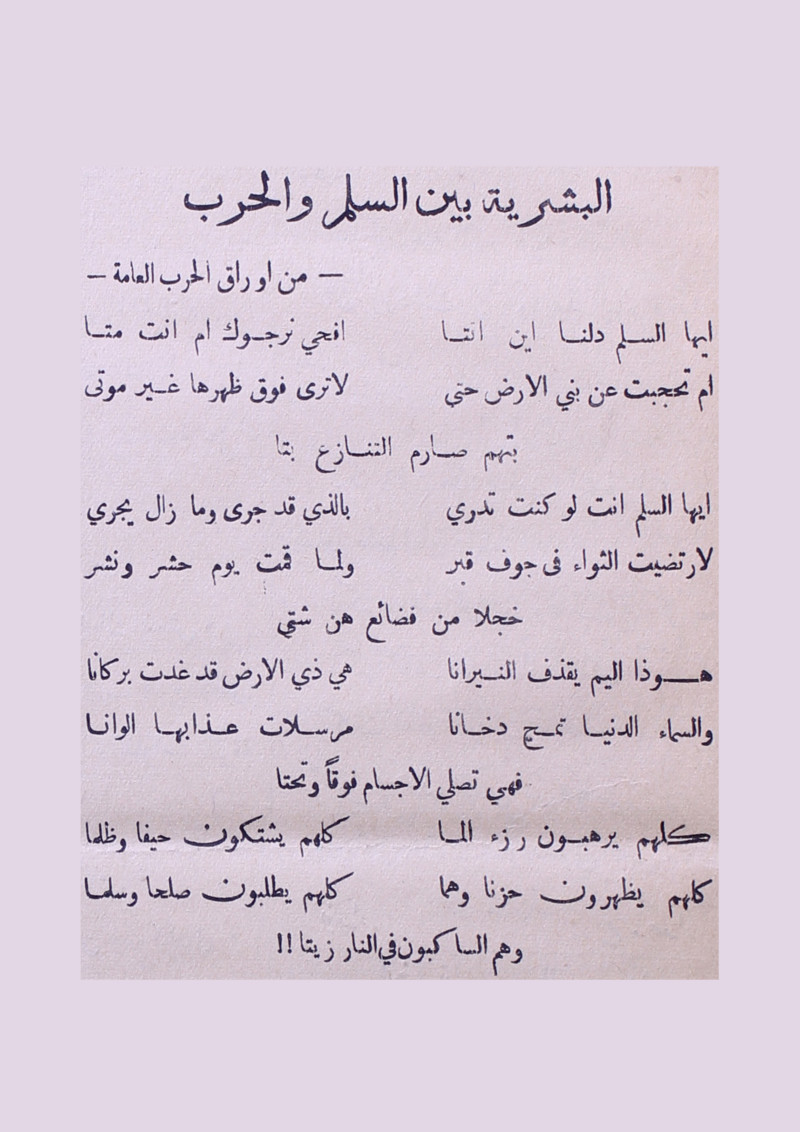 البشرية بين السلم والحرب
— من اوراق الحرب العامة —
ايها السلم دلنا اين انتا افحي نرجوك ام انت متا
ام تحجبت عن بني الارض حتى لا ترى فوق ظهرها غير موتى
بتهم صارم التنازع بتا
ايها السلم انت لو كنت تدري بالذي قد جرى وما زال يجري
لارتضيت الثواء فى جوف قبر ولما قمت يوم حشر ونشر
خجلا من فضائع هن شتى
هوذا اليم يقذف النيرانا هي ذي الارض قد غدت بركانا
والسماء الدنيا تمج دخانا مرسلات عذابها الوانا
فهي تصلي الاجسام فوقاً وتحتا
كلهم يرهبون رزء الما كلهم يشتكون حيفا وظلما
كلهم يظهرون حزنا وهما كلهم يطلبون صلحا وسلما
وهم الساكبون في النار زيتا !!